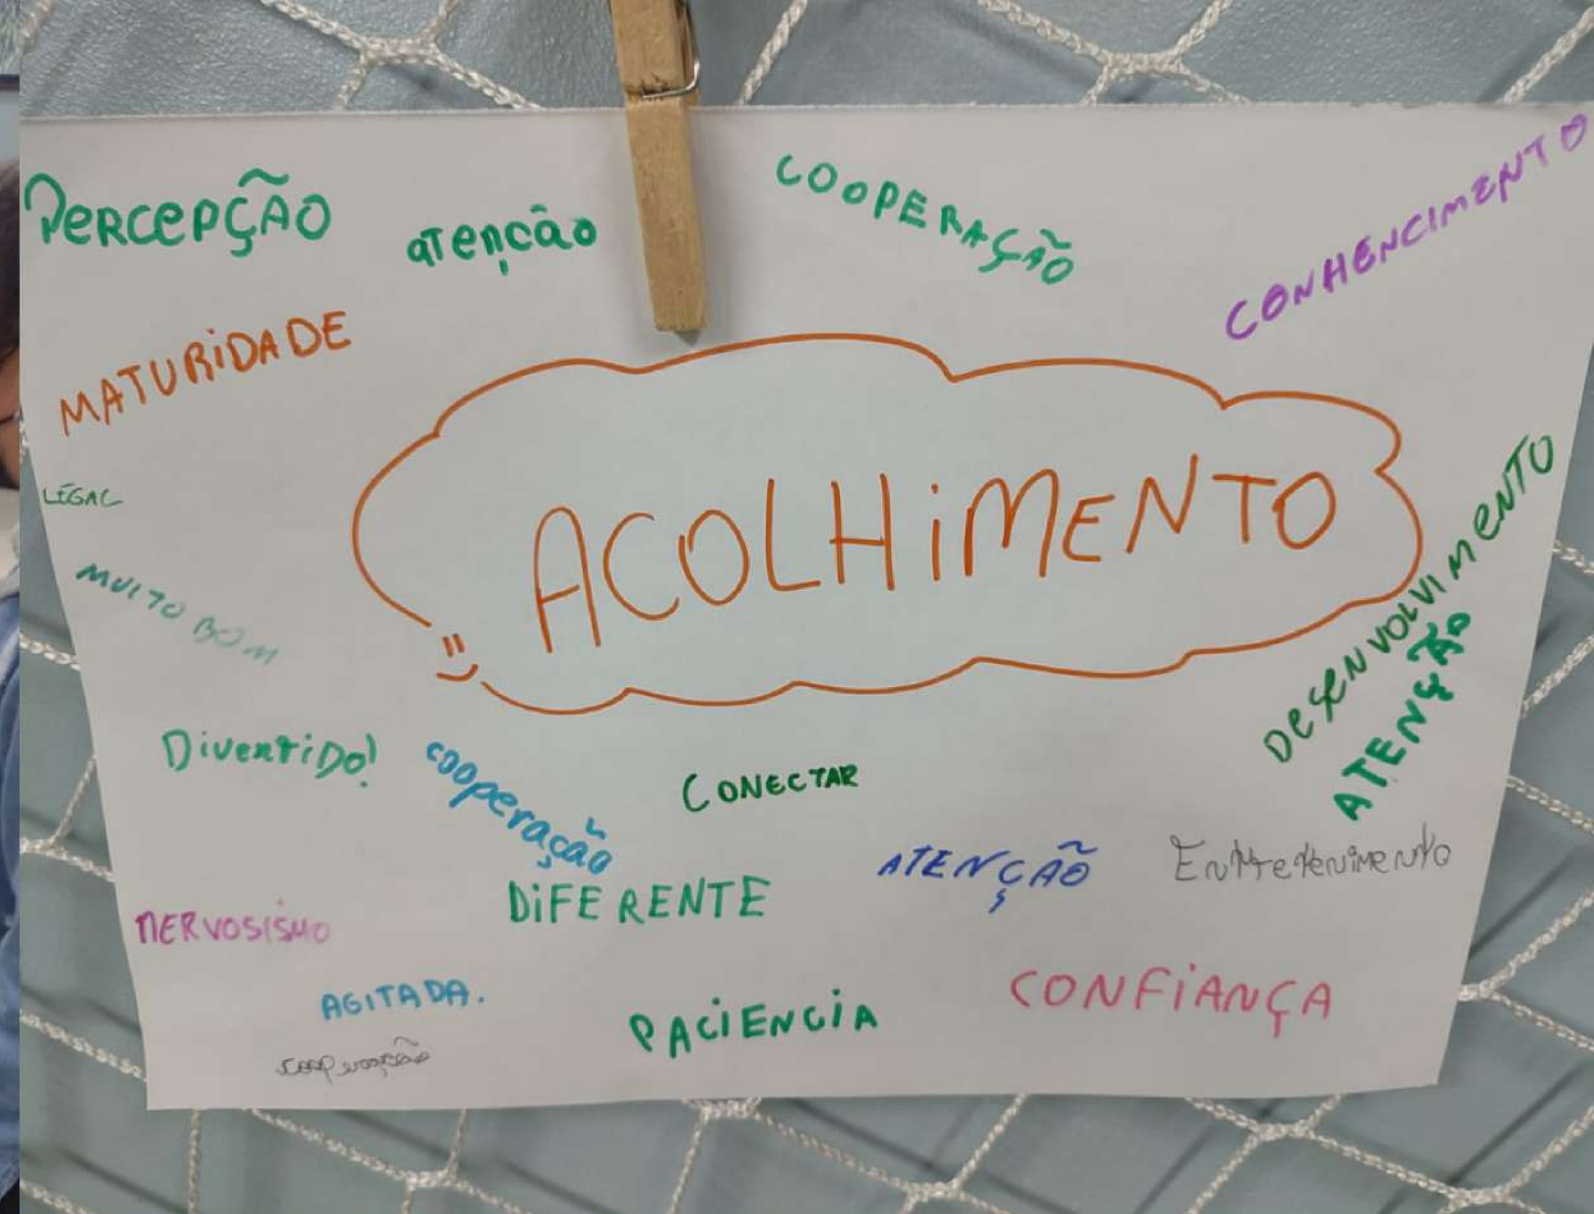 PERCEPÇÃO
atenção
COOPERAÇÃO
CONHENCIMENTO
MATURiDADE
LEGAL
MUITO BOM
ACOLHiMENTO
DESENVOLVIMENTO
ATENÇÃO
DivertiDo!
cooperação
CONECTAR
ATENÇÃO
Entretenimento
DiFERENTE
NERVOSISMO
AGITADA.
PACiENCiA
CONFiANÇA
cooperação